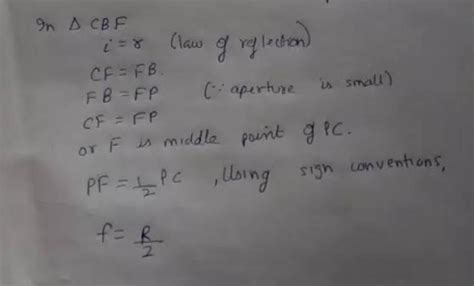 In Δ CBF
i = r (law of reflection)
CF = FB.
FB = FP (∵ aperture is small)
CF = FP
or F is middle point of PC.
PF = 1/2 PC , Using sign conventions,
f = R/2